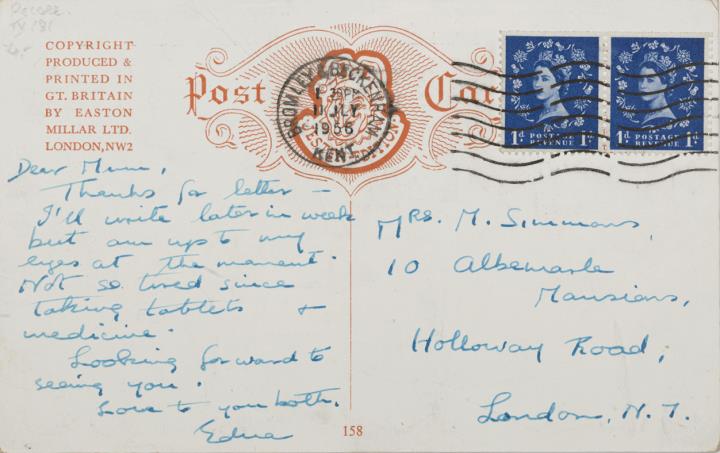 COPYRIGHT
PRODUCED &
PRINTED IN
GT. BRITAIN
BY EASTON
MILLAR LTD.
LONDON, NW2
Post Car
BROMLEY & BECKENHAM
11 JLY
1956
KENT
1d POSTAGE REVENUE 1d
1d POSTAGE REVENUE 1d
Dear Mum,
Thanks for letter –
I'll write later in week
but am up to my
eyes at the moment.
Not so tired since
taking tablets &
medicine.
Looking forward to
seeing you.
Love to you both.
Edna
Mrs. M. Simmons,
10 Albemarle
Mansions,
Holloway Road,
London, N. 7.
158